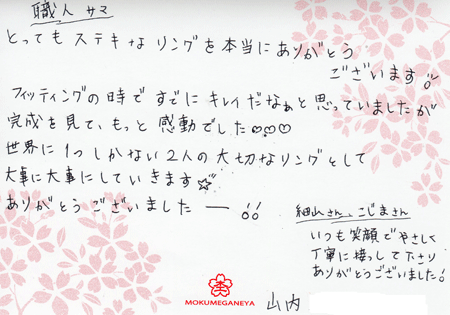 職人サマ
とってもステキなリングを本当にありがとう
ございます!!
フィッティングの時ですでにキレイだなぁと思っていましたが
完成を見て、もっと感動でした♡♡♡
世界に1つしかない2人の大切なリングとして
大事に大事にしていきます☆
ありがとうございましたー!!
細山さん、こじまさん
いつも笑顔でやさしく
丁寧に接して下さり
ありがとうございました!
MOKUMEGANEYA
山内